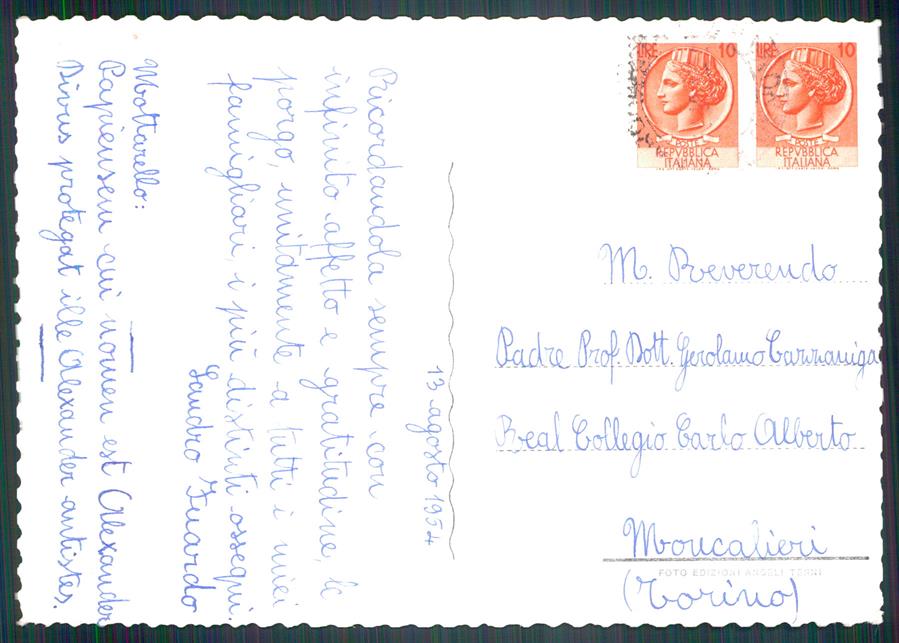 13 agosto 1954
Ricordandola sempre con
infinito affetto e gratitudine, le
porgo, unitamente a tutti i miei
famigliari, i più distinti ossequi.
Sandro Zuardo
Mottarello:
Papiensem cui nomen est Alexander
Divus protegat ille Alexander antistes.
LIRE 10
POSTE
REPVBBLICA
ITALIANA
LIRE 10
POSTE
REPVBBLICA
ITALIANA
M. Reverendo
Padre Prof. Dott. Gerolamo Carraniga
Real Collegio Carlo Alberto
Moncalieri
FOTO EDIZIONI ANGELI TERNI
(Torino)